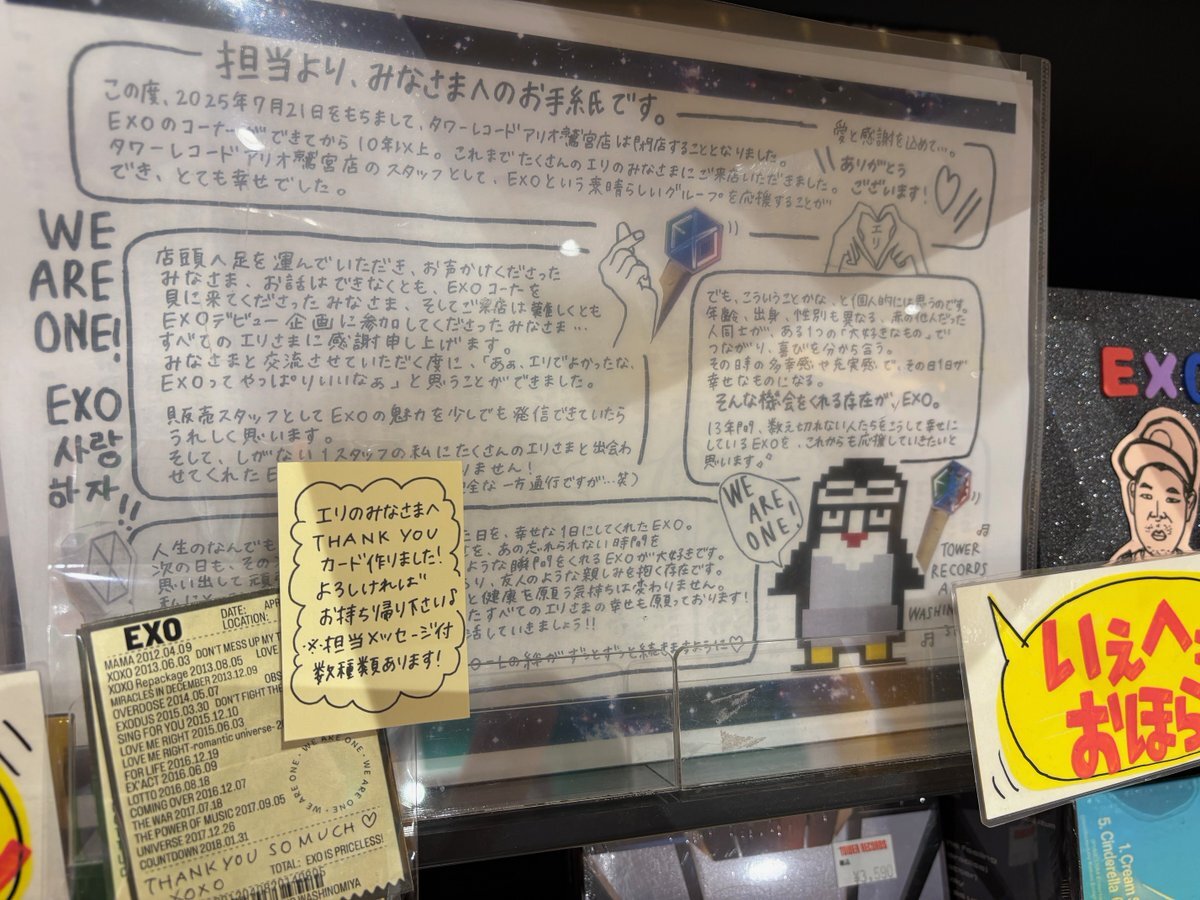 担当より、みなさまへのお手紙です。
この度、2025年7月21日をもちまして、タワーレコードアリオ鷲宮店は閉店することとなりました。
EXOのコーナーができてから10年以上。これまでたくさんのエリのみなさまにご来店いただきました。
タワーレコードアリオ鷲宮店のスタッフとして、EXOという素晴らしいグループを応援することが
でき、とても幸せでした。
愛と感謝を込めて…。
ありがとう
ございます!
エリ
WE
ARE
ONE!
EXO
사랑
하자!!
店頭へ足を運んでいただき、お声がけくださった
みなさま、お話はできなくとも、EXOコーナーを
見に来てくださったみなさま、そしてご来店は難しくとも
EXOデビュー企画に参加してくださったみなさま…
すべてのエリさまに感謝申し上げます。
みなさまと交流させていただく度に、「あぁ、エリでよかったな、
EXOってやっぱりいいなぁ」と思うことができました。
販売スタッフとしてEXOの魅力を少しでも発信できていたら
うれしく思います。
そして、しがない1スタッフの私にたくさんのエリさまと出会わ
せてくれたE
りません!
全な一方通行ですが…笑)
でも、こういうことかな、と個人的には思うのです。
年齢、出身、性別も異なる、赤の他人だった
人同士が、ある1つの「大好きなもの」で
つながり、喜びを分かち合う。
その時の多幸感や充実感で、その日1日が
幸せなものになる。
そんな機会をくれる存在が、EXO。
13年間、数え切れない人たちをこうして幸せに
しているEXOを、これからも応援していきたいと
思います。
人生のなんでも
次の日も、その
思い出して頑
た日を、幸せな1日にしてくれたEXO。
を、あの忘れられない時間を
ような瞬間をくれるEXOが大好きです。
り、友人のような親しみを抱く存在です。
と健康を願う気持ちは変わりません。
たすべてのエリさまの幸せも願っております!
活していきましょう!!
の絆がずっとずっと続きますように♡
WE
ARE
ONE!
TOWER
RECORDS
エリのみなさまへ
THANK YOU
カード作りました!
よろしければ
お持ち帰り下さい♪
※担当メッセージ付
数種類あります!
EXO
DATE:
LOCATION:
MAMA 2012.04.09
XOXO 2013.06.03 DON'T MESS UP MY T
XOXO Repackage 2013.08.05 LOVE
MIRACLES IN DECEMBER 2013.12.09
OVERDOSE 2014.05.07
EXODUS 2015.03.30 DON'T FIGHT THE
SING FOR YOU 2015.12.10
LOVE ME RIGHT 2015.06.03
LOVE ME RIGHT-romantic universe-
FOR LIFE 2016.12.19
EX'ACT 2016.06.09
LOTTO 2016.08.18
COMING OVER 2016.12.07
THE WAR 2017.07.18
THE POWER OF MUSIC 2017.09.05
UNIVERSE 2017.12.26
COUNTDOWN 2018.01.31
WE ARE ONE · WE ARE ONE · WE ARE ONE
THANK YOU SO MUCH ♡
XOXO
TOTAL: EXO IS PRICELESS!
WASHINOMIYA
EXO
いえへ
おほら
TOWER RECORDS
¥3,590
1. Cream
5. Cinderella